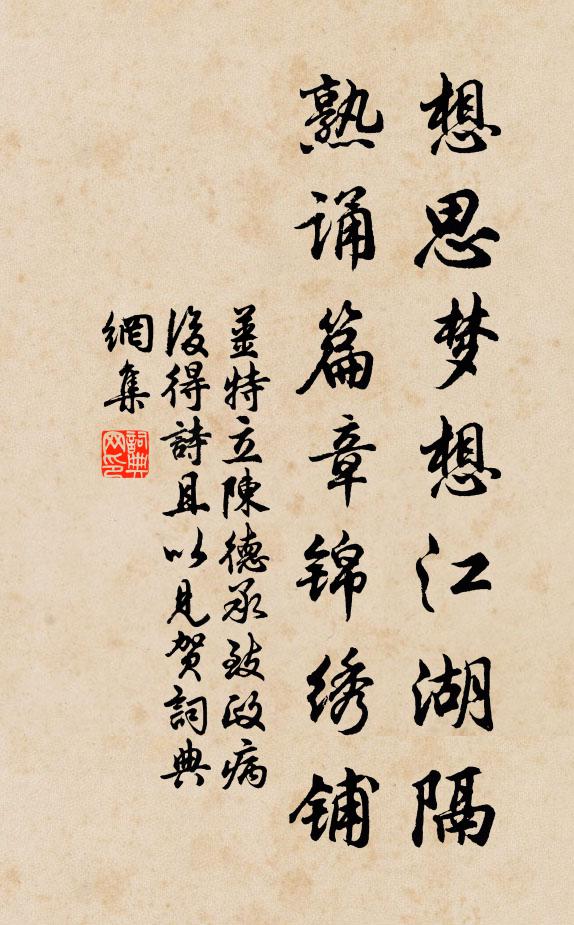 想思梦想江湖隔
熟诵篇章锦绣铺
姜特立陳德承致政病
後得詩且以見賀詞典
網集
詞典网印